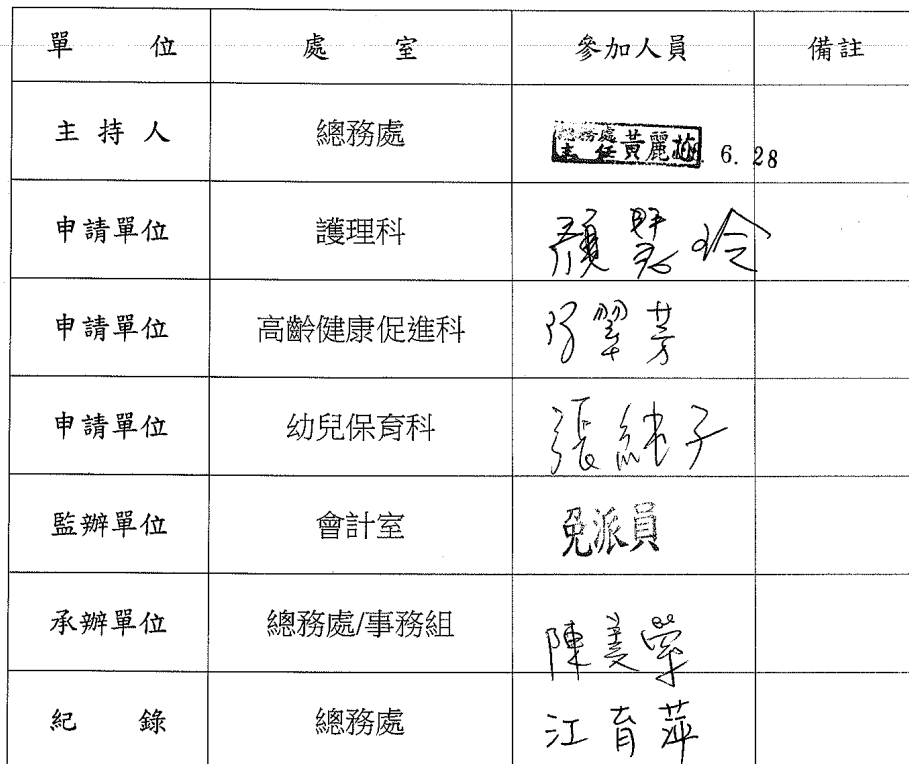 單 位 處 室 參加人員 備註
主 持 人 總務處 總務處主任黃麗梅 6. 28
申請單位 護理科 顏慧玲
申請單位 高齡健康促進科 翠芳
申請單位 幼兒保育科 張純子
監辦單位 會計室 免派員
承辦單位 總務處/事務組 陳美榮
紀 錄 總務處 江育萍